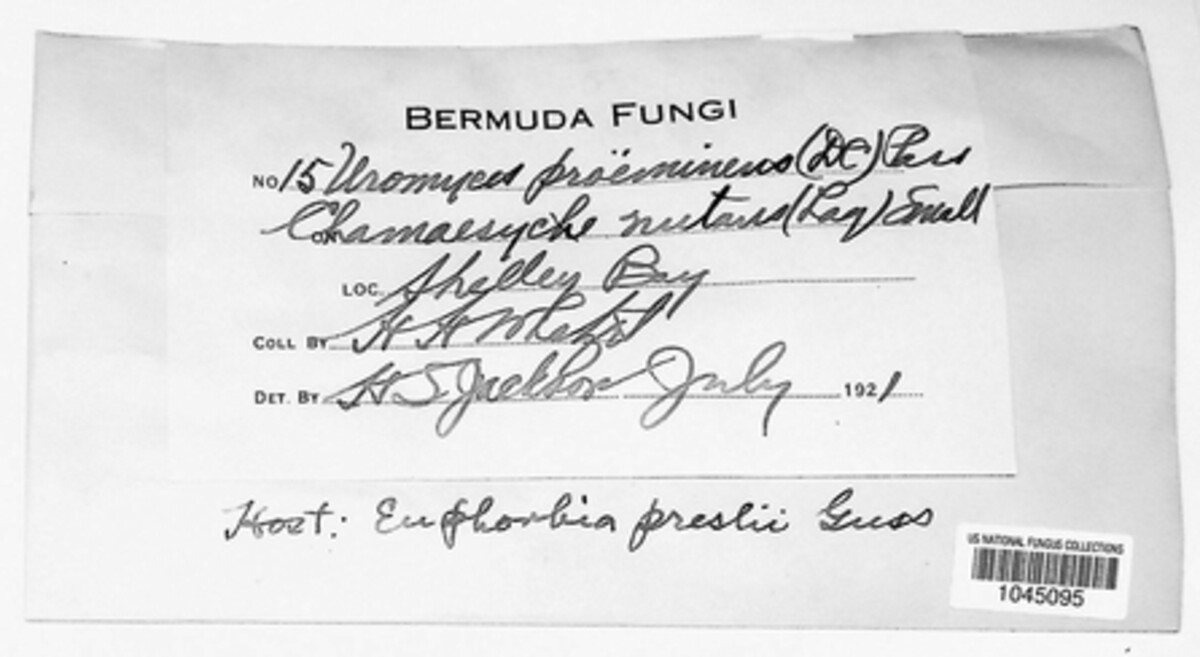 BERMUDA FUNGI
NO 15 Uromyces proëminens (DC) Pass
ON Chamaesyche nutans (Lag) Small
LOC. Shelley Bay
COLL BY H H Whetzel
DET. BY H S Jackson July 1921
Host: Euphorbia preslii Guss
US NATIONAL FUNGUS COLLECTIONS
1045095